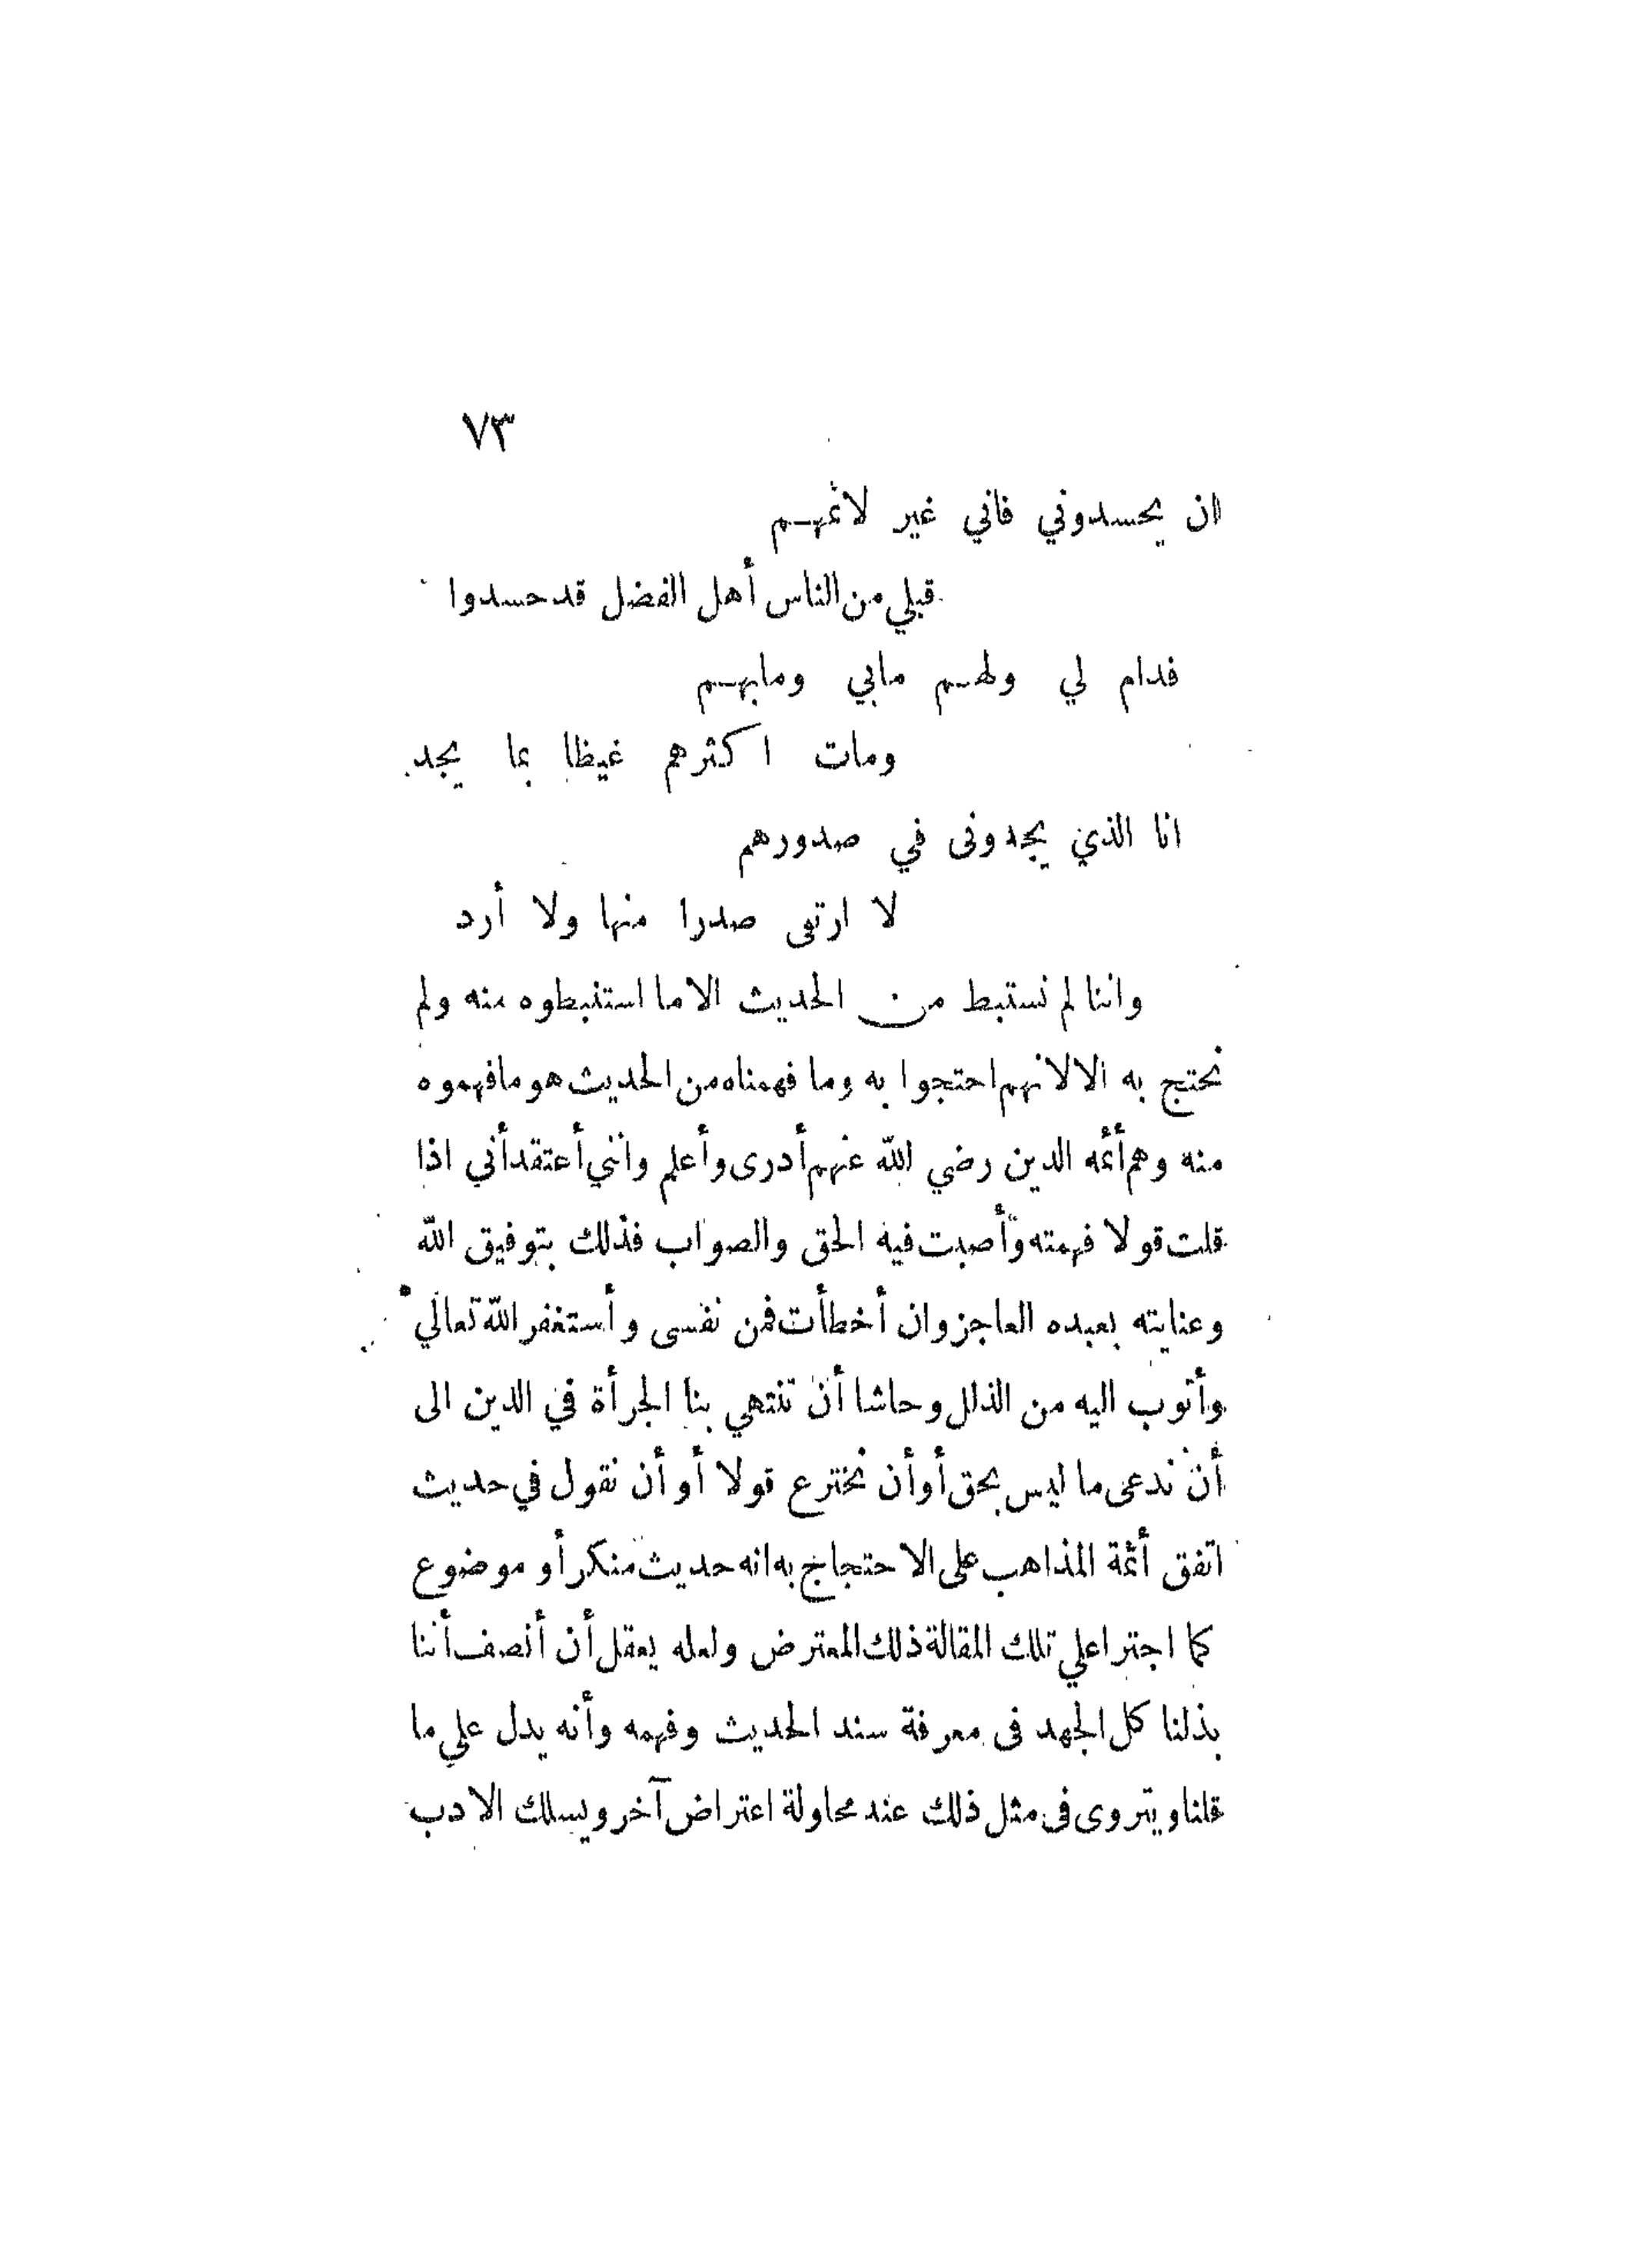 ٧٣
ان يحسدوني فاني غير لائمهم
قبلي من الناس أهل الفضل قد حسدوا
فدام لي ولهم مابي ومابهم
ومات اكثرهم غيظا بما يجد
انا الذي يجدونى في صدورهم
لا ارتقى صدرا منها ولا أرد
واننا لم نستبط من الحديث الا ما استنبطوه منه ولم
نحتج به الا لانهم احتجوا به وما فهمناه من الحديث هو ما فهموه
منه وهم أئمه الدين رضي الله عنهم أدرى وأعلم وانني أعتقد أني اذا
قلت قولا فهمته وأصبت فيه الحق والصواب فذلك بتوفيق الله
وعنايته بعبده العاجز وان أخطأت فمن نفسى وأستغفر الله تعالي
وأتوب اليه من الذلل وحاشا أن تنتهي بنا الجرأة في الدين الى
أن ندعى ما ليس بحق أو أن نخترع قولا أو أن نقول في حديث
اتفق أئمة المذاهب على الاحتجاج به انه حديث منكر أو موضوع
كما اجترا علي تلك المقالة ذلك المعترض ولعله يعقل أن أنصف أننا
بذلنا كل الجهد فى معرفة سند الحديث وفهمه وأنه يدل علي ما
قلنا ويتروى فى مثل ذلك عند محاولة اعتراض آخر ويسلك الادب